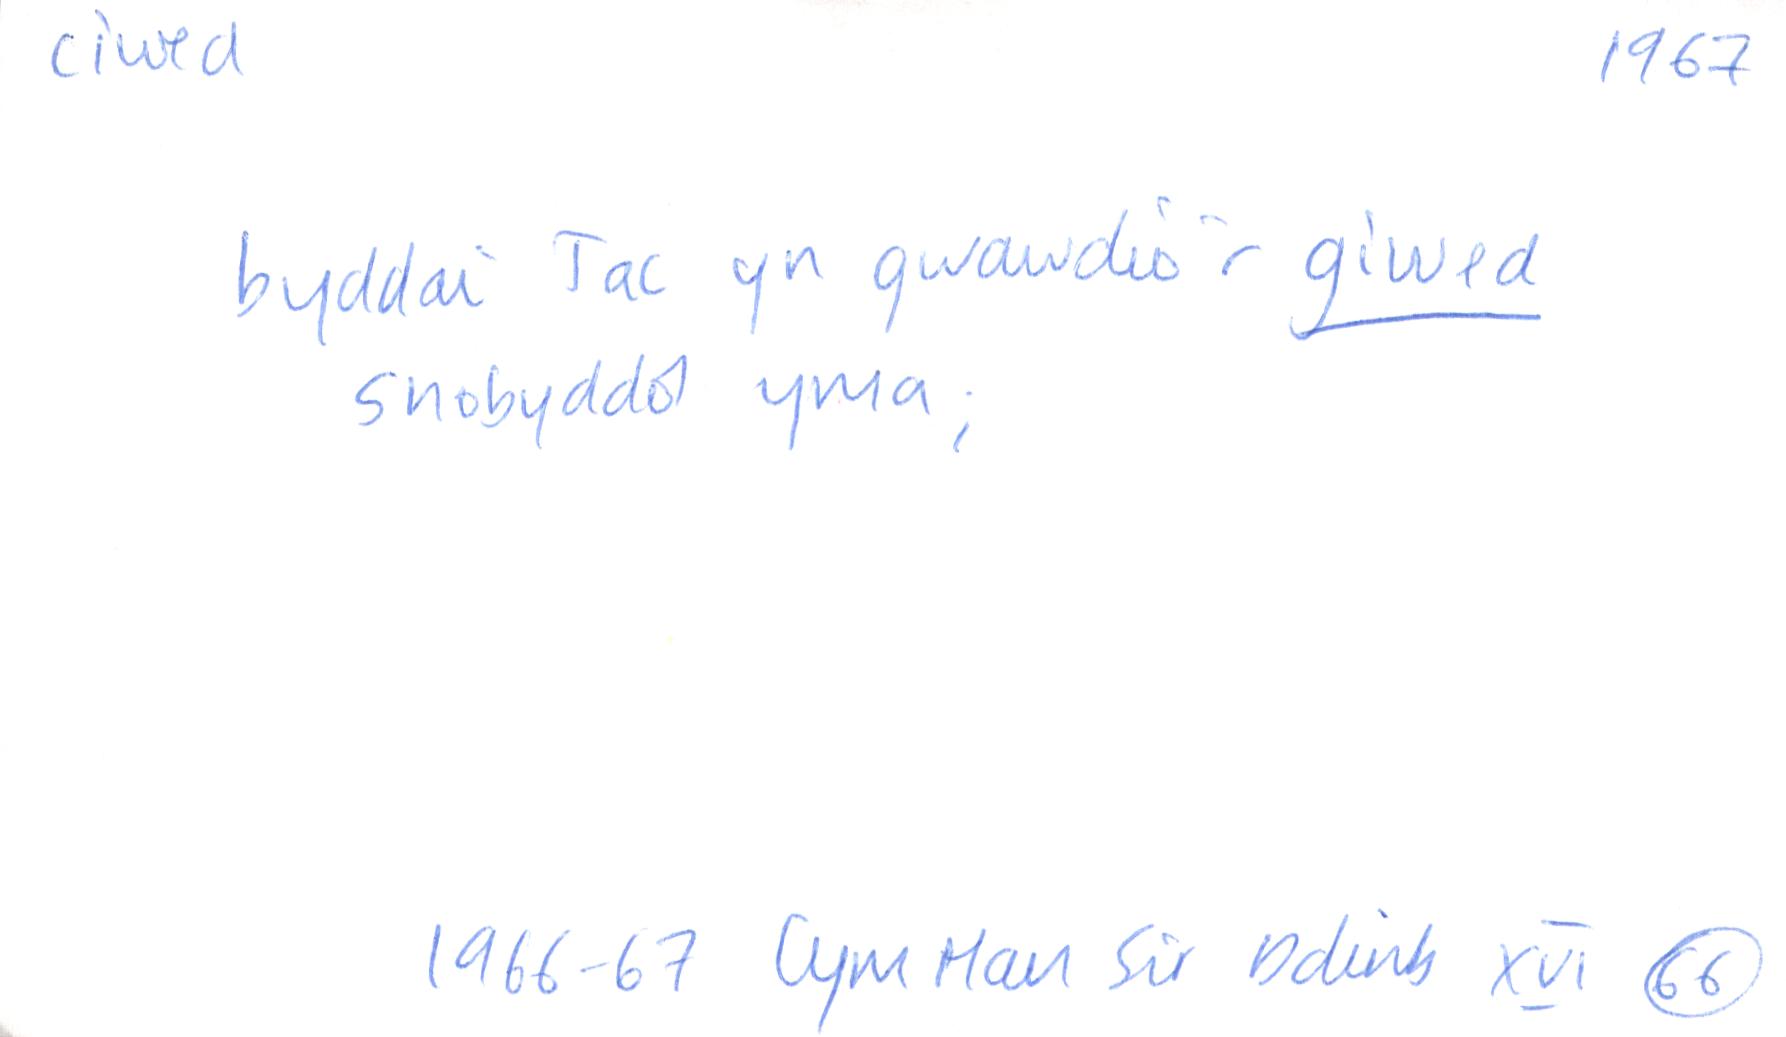 ciwed 1967
byddai Tac yn gwawdio'r giwed
snobyddol yma;
1966-67 Cym Han Sir Ddinb XVI 66